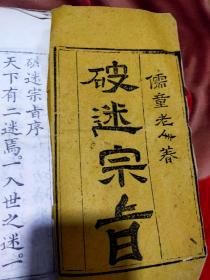 儒童老人著
破迷宗旨
破迷宗旨序
天下有二迷焉。一入世之迷。一